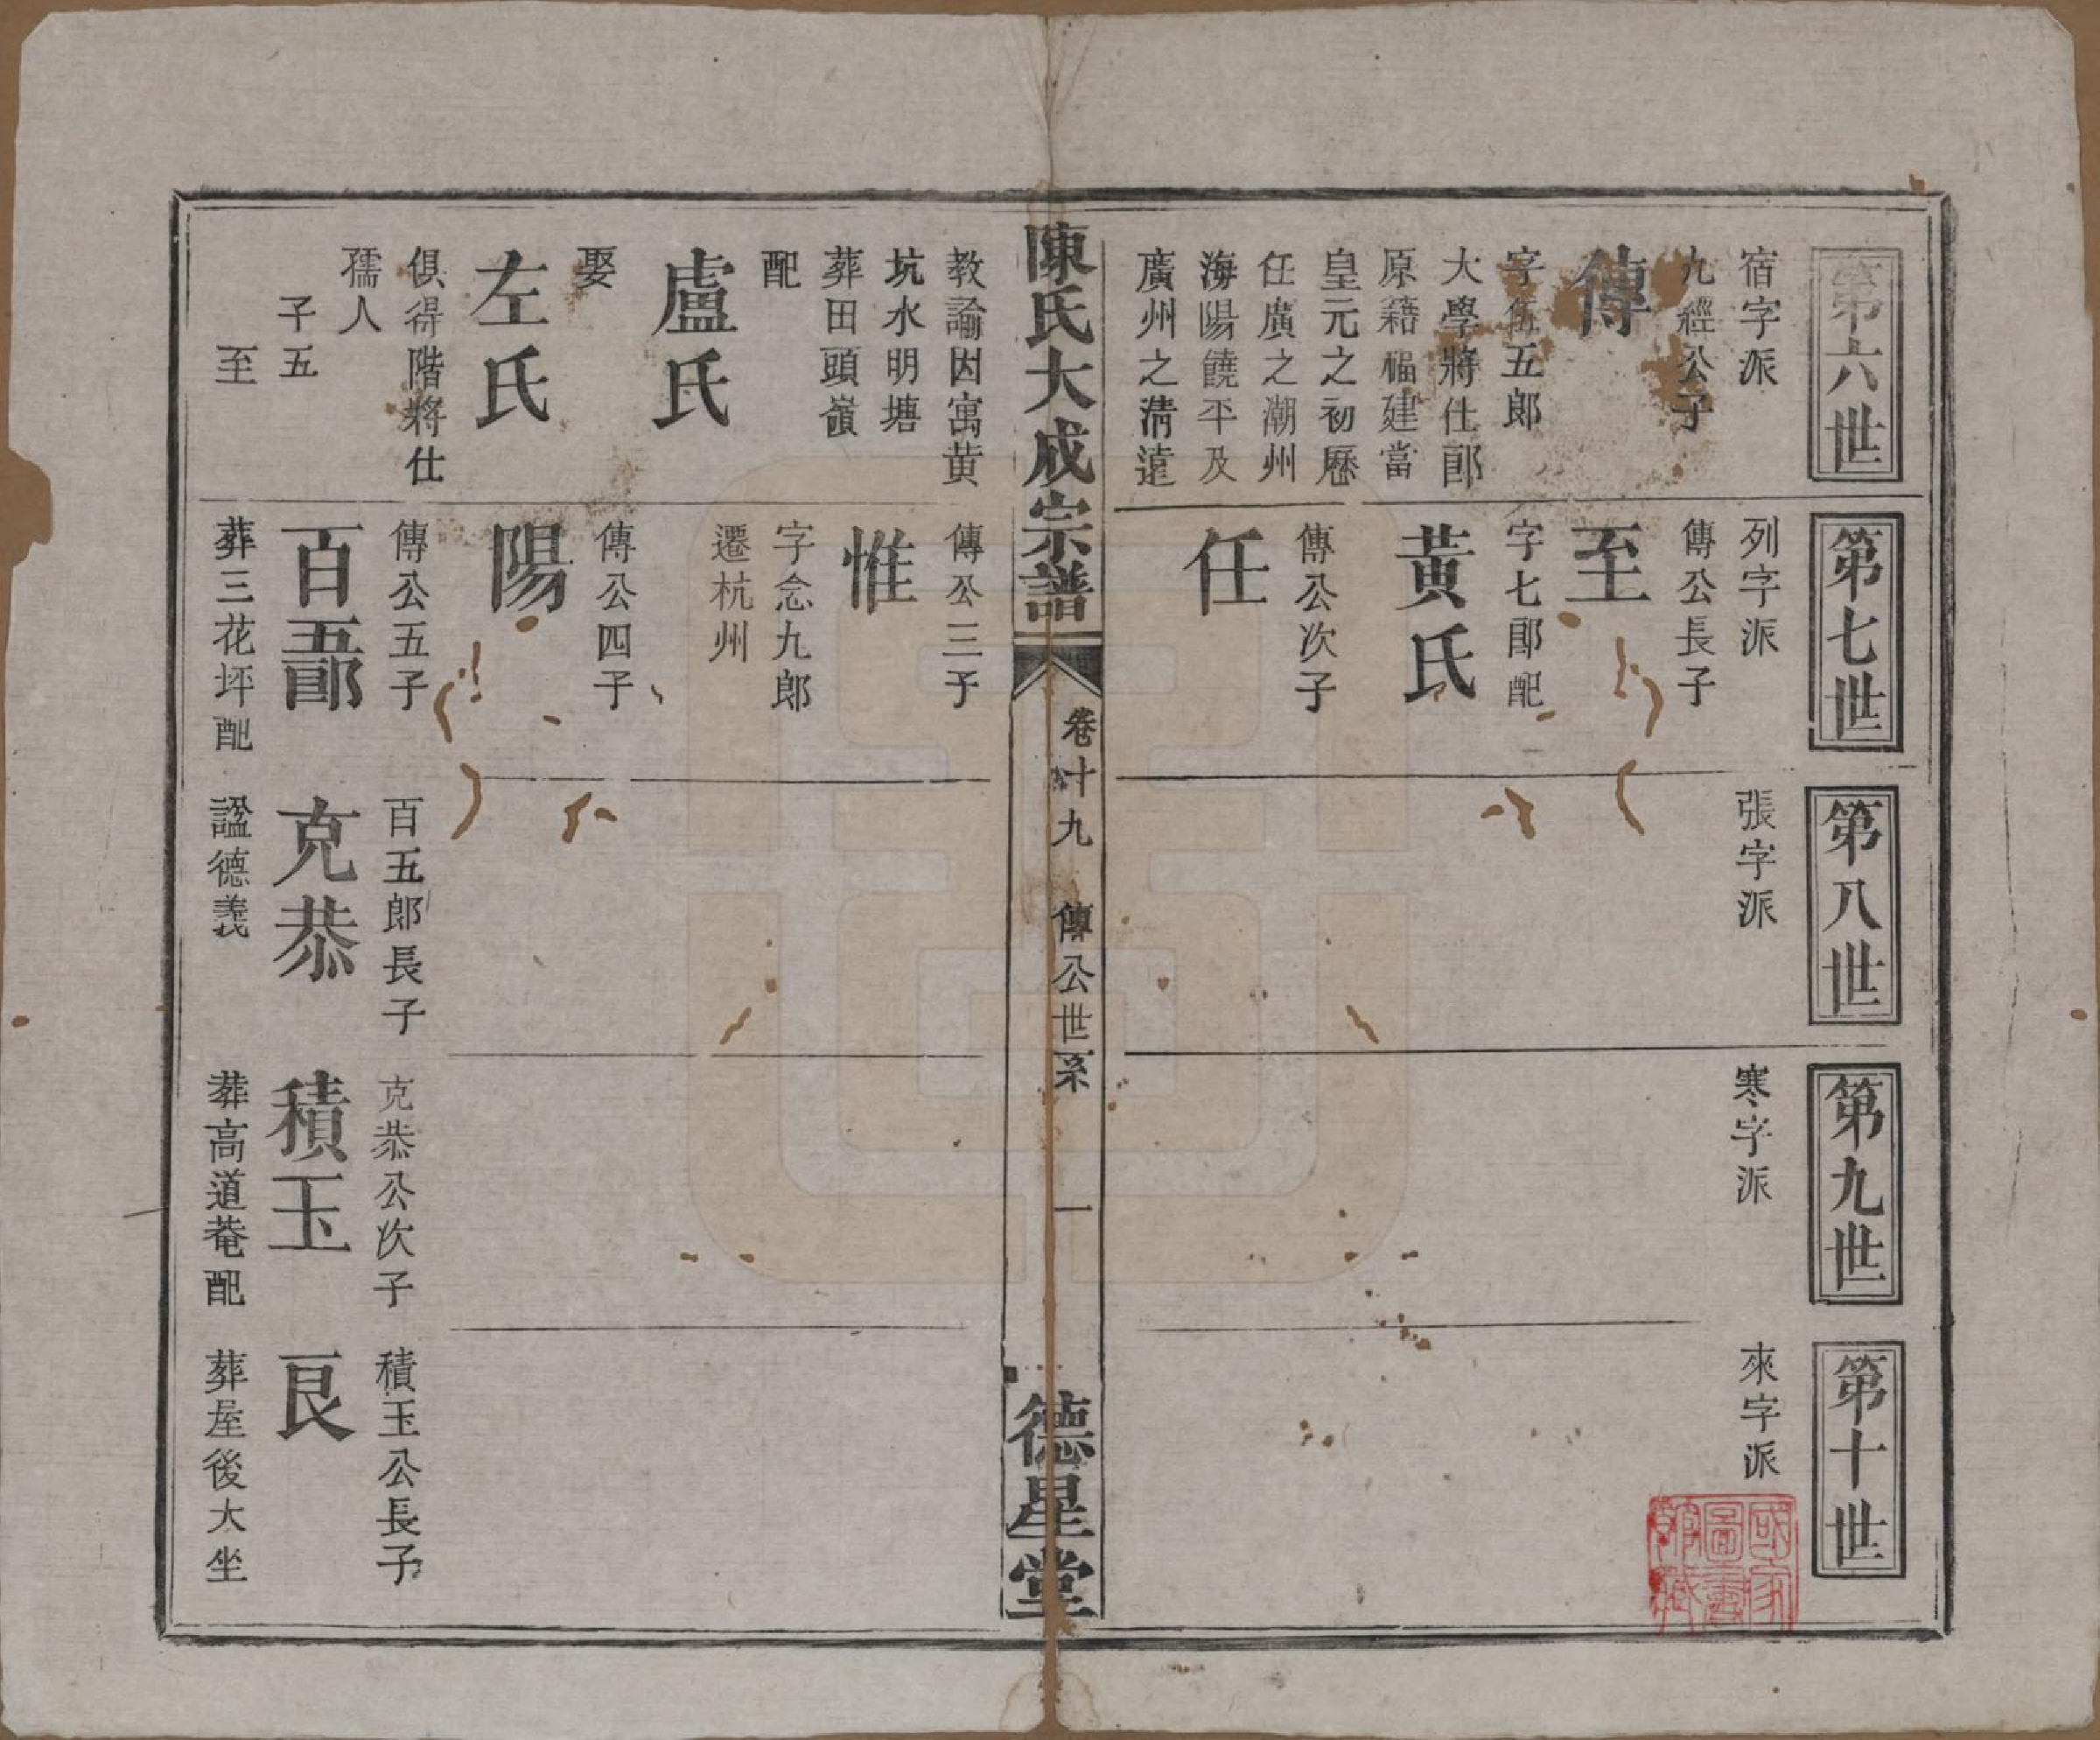 第六世
宿字派
九經公子
傳
字伍五郎
大學將仕郎
原籍福建當
皇元之初歷
任廣之潮州
海陽饒平及
廣州之清遠
第七世
列字派
傳公長子
至
字七郎配
黃氏
傳公次子
任
第八世
張字派
第九世
寒字派
第十世
來字派
國家圖書館藏
陳氏大成宗譜
卷十九
傳公世系
一
德星堂
教諭因寓黃
坑水明塘
葬田頭嶺
配
盧氏
娶
左氏
俱得階將仕
孺人
子五
至
傳公三子
惟
字念九郎
遷杭州
傳公四子
陽
傳公五子
百五郎
葬三花坪配
百五郎長子
克恭
謚德義
克恭公次子
積玉
葬高道菴配
積玉公長子
艮
葬屋後大坐